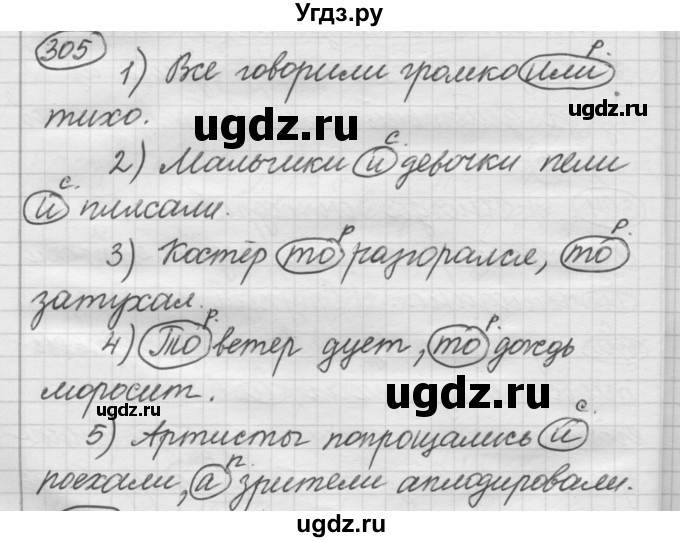 Угдз.ру
305
1) Все говорили громко или р.
тихо.
ugdz.ru
ugdz.ru
2) Мальчики и с. девочки пели
и с. плясали.
3) Костёр то р. разгорался, то р.
затухал.
4) То р. ветер дует, то р. дождь
моросит.
ugdz.ru
ugdz.ru
5) Артисты попрощались и с.
поехали, а п. зрители аплодировали.
ugdz.ru